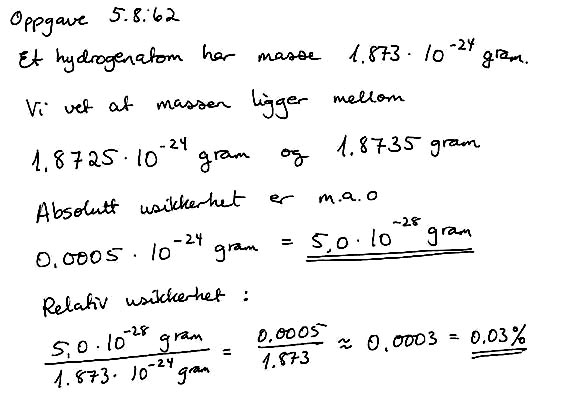 Oppgave 5.8.62
Et hydrogenatom har masse 1.873 · 10^-24 gram.
Vi vet at massen ligger mellom
1.8725 · 10^-24 gram og 1.8735 gram
Absolutt usikkerhet er m.a.o
0.0005 · 10^-24 gram = 5,0 · 10^-28 gram
Relativ usikkerhet :
5,0 · 10^-28 gram / 1.873 · 10^-24 gram = 0.0005 / 1.873 ≈ 0,0003 = 0.03%